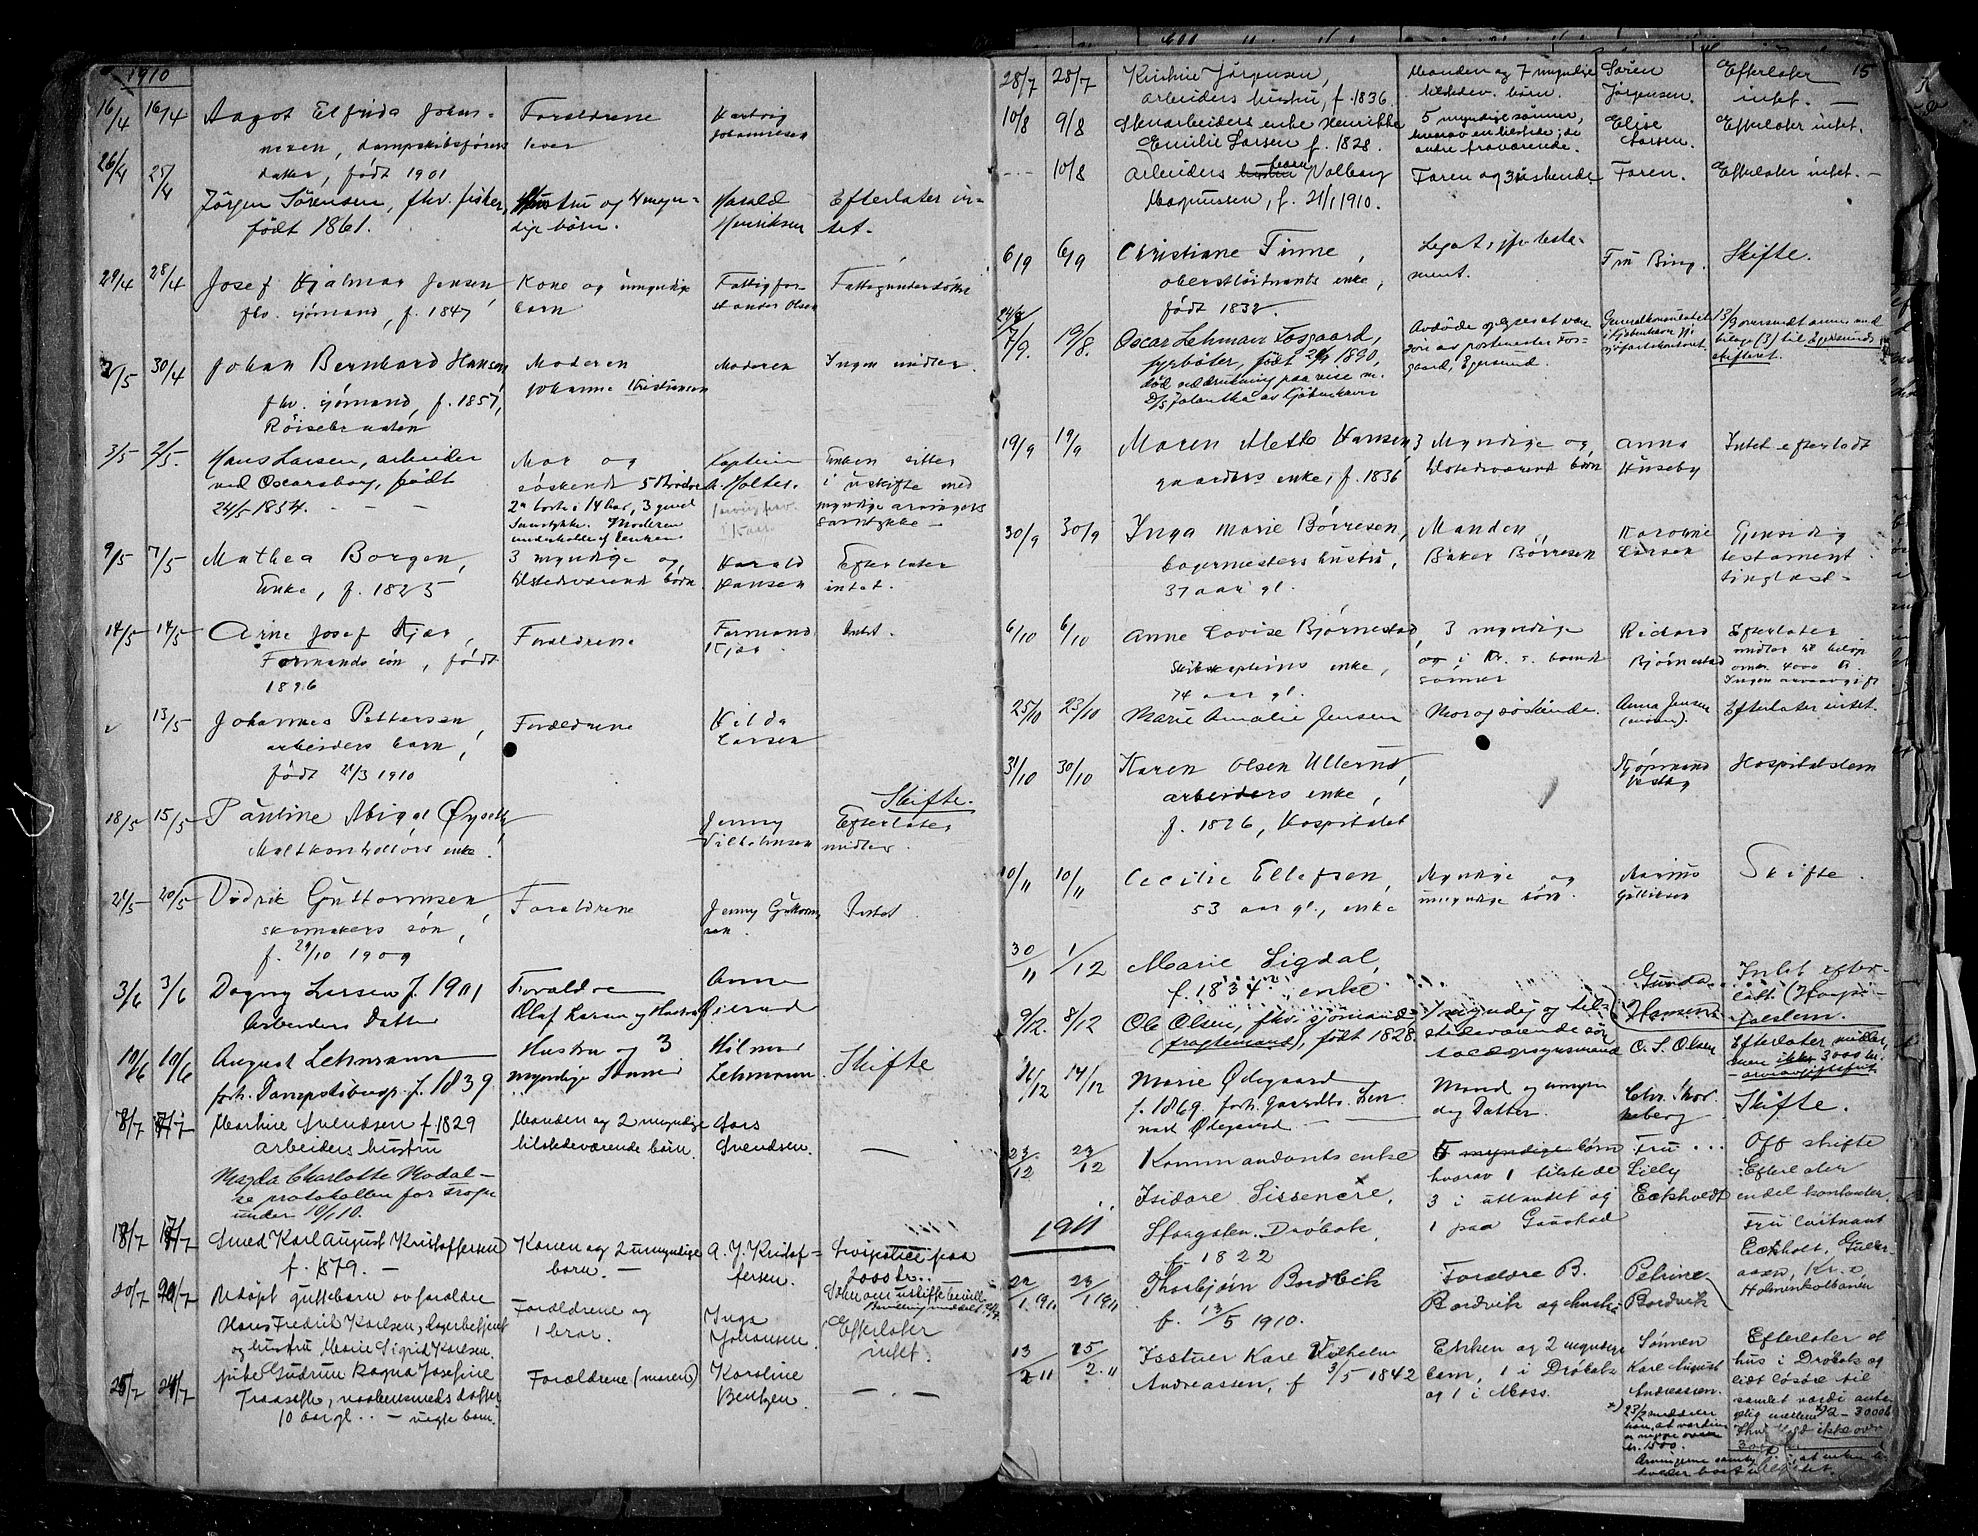 1910
16/4 16/4 Aagot Elfrida Johan-
nesen, dampskibsførers
datter, født 1901
Forældrene
lever
Hartvig
Johannesen
26/4 25/4 Jørgen Sørensen, fhv. fisker,
født 1861.
Hustru og 4 myn-
dige børn.
Harald
Henriksen
Efterlater in-
tet.
29/4 28/4 Josef Hjalmar Jensen
fhv. sjømand, f. 1847
Kone og umyndige
barn
Fattigfor-
stander Olsen
Fattigunderstøttet
2/5 30/4 Johan Bernhard Hansen
fhv. sjømand, f. 1857,
Røisebraaten
Moderen
Johanne Kristiansen
Moderen
Ingen midler.
3/5 2/5. Hans Larsen, arbeider
ved Oscarsborg, født
24/5 1854. — —
Mor og
søskende 5 brødre
2 borte i 14 aar, 3 gived
Samtykke. Moderen
underholdes af Enken.
Kaptein
A. Holter.
Enken sitter
i uskifte med
myndige arvingers
samtykke —
9/5 7/5 Mathea Borgen,
Enke, f. 1825
3 myndige og
tilstedeværende børn.
Harald
Hansen
Efterlater
intet.
14/5 14/5 Arne Josef Kjær,
Formands søn, født
1896
Forældrene
Formand
Kjær
Intet.
13/5 Johannes Pettersen,
arbeiders barn,
født 21/3 1910
Forældrene
Hilda
Larsen
18/5 15/5 Pauline Abigal
Maltkontrollørs enke.
Jenny
Vilhelmsen
Skifte.
Efterlater
midler
21/5 20/5 Didrik Guttormsen,
skomakers søn,
f. 29/10 1909
Forældrene
Jenny Guttorm-
sen.
Intet
3/6 3/6 Dagny Larsen f. 1901
Arbeiders Datter
Forældre
Olaf Larsen og Hustru
Anna
Øierud
10/6 10/6 August Lehmann
forh. Dampskibsexp. f. 1839
Hustru og 3
myndige Sønner
Hilmar
Lehmann
Skifte
8/7 Marthine Svendsen f. 1829
arbeiders hustru
Manden og 2 myndige
tilstedeværende børn.
Lars
Svendsen.
—
Magda Charlotte Hodal —
se protokollen for Frogn
under 10/1 10.
18/7 17/7 Smed Karl August Kristoffersen
f. 1879. —
Konen og 2 umyndige
børn. —
A. J. Kristof-
fersen.
Livspolice paa
2000 kr..
20/7 Udøpt guttebarn av forældre
Hans Fredrik Karlsen, lagerbetjent
og hustru Marie Sigrid Karlsen.
Forældrene og
1 bror.
Inga
Johansen.
Efterlater
intet.
25/7 24/7 pike Gudrun Ragna Josefine
datter
10 aar gl. . . — uegte barn.
Forældrene (moren)
Karoline
Bentzen.
— . — .
15
28/7 28/7 Kirstine Jørgensen,
arbeiders hustru, f. 1836.
Manden og 7 myndige
tilstedev. børn.
Søren
Jørgensen.
Efterlater
intet. —
10/8 9/8 Stenarbeiders enke Henrikke
Emilie Larsen f. 1828.
5 myndige sønner,
hvorav en tilstede; de
andre fraværende.
Elise
Larsen.
Efterlater intet.
--- 10/8 Arbeiders hustru barn Valborg
Magnussen, f. 21/1 1910.
Faren og 3 søskende.
Faren.
Efterlater intet. —
6/9 6/9 Christiane Finne,
oberstløitnants enke,
født 1832.
Legat, jfr testa-
ment.
Fru Bing.
Skifte.
7/9. 19/8. Oscar Lehman Fosgaard,
fyrbøter, født 1890,
død ved drukning paa reise m.
D/S Jolantha av Kjøbenhavn
Avdøde opgives at være
søn av postmester Fos-
gaard, Egersund.
Generalkonsulatet
i Kjøbenhavn gj.
sjøfartskontoret.
13/9 oversendt anm. med
bilage (3) til Egersunds
skifteret.
19/9 19/9 Maren Mette Hansen
gaardbrs enke, f. 1836
3 Myndige og
tilstedeværende børn
Anna
Huseby
Intet efterladt
30/9 30/9 Inga Marie Børresen,
bagermesters hustru,
37 aar gl.
Manden,
Baker Børresen
Karoline
Larsen
Gjensidig
testament
tinglæst.
6/10 6/10 Anne Lovise Bjørnestad
Skibskapteins enke,
74 aar gl.
3 myndige
og i Kr.a boende
sønner
Rickard
Bjørnestad
Efterlater
midler til beløp
omkr. 4000 kr.
Ingen arveavgift
25/10 23/10 Marie Amalie Jensen
Mor og søskende.
Anna Jensen
(moren).
Efterlater intet.
31/10 30/10 Karen Olsen Ullerud,
arbeiders enke,
f. 1826, Hospitalet
Kjøpmand
Hospitalslem
10/11 10/11 Cecilie Ellefsen,
53 aar gl., enke
Myndige og
umyndige børn.
Marius
Gulliksen
Skifte.
30/11 1/12 Marie Sigdal,
f. 1834, enke
Gunda
Hansen
Intet efter-
ladt. (Hospi-
talslem.
9/12. 8/12 Ole Olsen, fhv. sjømand
(fragtemand), født 1828.
1 myndig og til-
stedeværende søn
toldopsynsmand
O. S. Olsen
Efterlater midler,
men ikke 3000 kr.
— arveavgiftsfrit
16/12 14/12 Marie Ødegaard
f. 1869. forh. Gaardbr. Len-
nart Ødegaard —
Mand og umyn-
dig Datter.
Chr. Thor-
keberg
Skifte.
23/12 23/12 Kommandants enke
Isidore Sissenère,
Storgaten. Drøbak
f. 1822
5 myndige børn
hvorav 1 tilstede
3 i utlandet og
1 paa Gaustad
Fru
Lilly
Eckholdt
Off. skifte
Efterlater
endel kontanter.
Fru løitnant
Eckholt, Gulle-
aasen, Kr.a
Holmenkolbanen
1911
22/1 1911 23/1 1911 Thorbjørn Bordvik
f. 13/5 1910.
Forældre B.
Bordvik og hustru
Petrine
Bordvik
13/2 11 25/2. 11 Isstuer Karl Vilhelm
Andreassen, f 3/5 1842
Enken og 2 myndige
barn, 1 i Drøbak
og 1 i Moss.
Sønnen
Karl August
Andreassen.
*)
23/2 meddeler
han, at værdien
er neppe over
kr. 1500.
Efterlater et
hus i Drøbak og
lidt løsøre til
samlet værdi anta-
gelig mellem 2 - 3000 kr